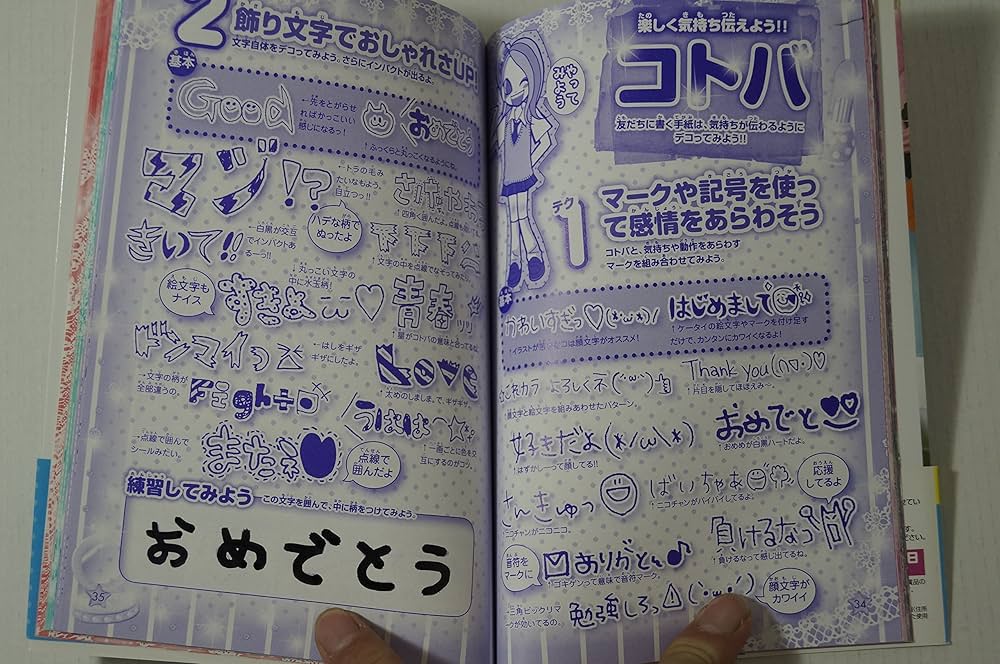 楽しく気持ち伝えよう!!
コトバ
友だちに書く手紙は、気持ちが伝わるように
デコってみよう!!
やって
みよう
テク
1
マークや記号を使っ
て感情をあらわそう
コトバと、気持ちや動作をあらわす
マークを組み合わせてみよう。
基本
かわいすぎっ♡(*'ω'*)ノ
はじめまして
↑ケータイの絵文字やマークを付け足す
だけで、カンタンにカワイくなるよ!
よろしくネ(･'ω'･)
顔文字と絵文字を組みあわせたパターン。
Thank you(∩▽･)♡
↑片目を隠してほほえみ〜。
好きだよ(*ノω\*)
↑はずかしーって顔してる!!
おめでと
↑おめめが白黒ハートだよ。
さんきゅっ
↑ニコチャンがニコニコ。
ばいちゃあ
↑ニコチャンがバイバイしてるよ。
応援
してるよ
音符を
マークに
ありがとん♪
↑ゴキゲンって意味で音符マーク。
負けるなっ
↑負けるなって感じ出てるね。
三角ビックリマ
ークが効いてるの。
勉強しろっ⚠(･'ω'･)
顔文字が
カワイイ
34
2
飾り文字でおしゃれさUP!
文字自体をデコってみよう。さらにインパクトが出るよ。
基本
Good
←先をとがらせ
ればかっこいい
感じになるっ!
おめでとう
↑ふっくらと丸っこくなるようにね。
マジ!?
←トラの毛み
たいなもよう。
目立つっ!!
ハデな柄で
ぬったよ
きいて!!
←白黒が交互
でインパクトあ
る〜う!!
↑文字の中を点線でなぞってみた。
絵文字も
ナイス
←丸っこい文字の
中に水玉柄!
青春
ドンマイっ
←はしをギザ
ギザにしたよ。
Love
↑太めのしましま。で、ギザギザ。
→文字の柄が
全部違うの。
Fight
うはは
↑一画ごとに色を交
互にするのがコツ。
→点線で囲んで
シールみたい。
またね
点線で
囲んだよ
練習してみよう
この文字を囲んで、中に柄をつけてみよう。
おめでとう
35